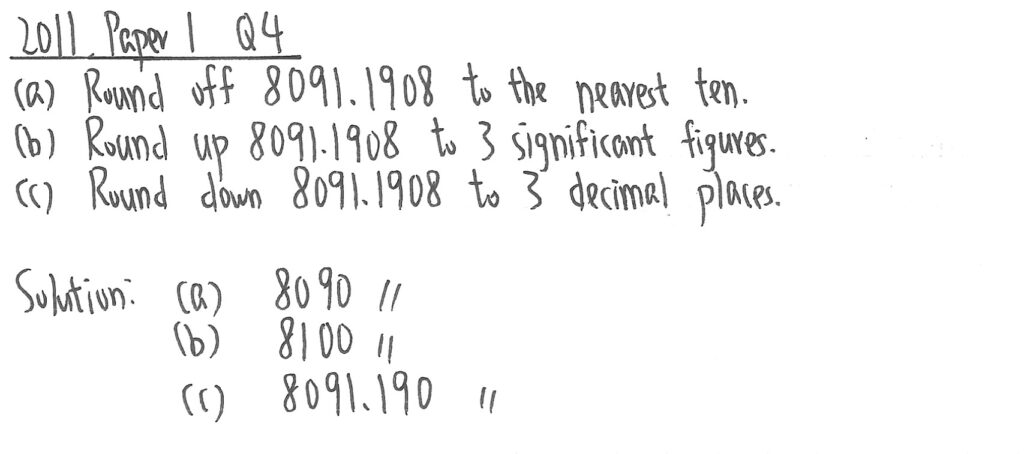 2011 Paper 1 Q4
(a) Round off 8091.1908 to the nearest ten.
(b) Round up 8091.1908 to 3 significant figures.
(c) Round down 8091.1908 to 3 decimal places.
Solution: (a) 8090 //
(b) 8100 //
(c) 8091.190 //